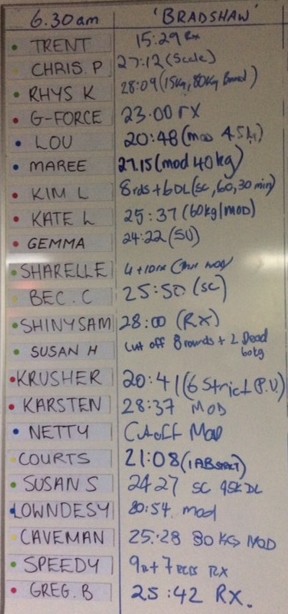 6.30am 'BRADSHAW'
TRENT 15:29 Rx
CHRIS. P 27:12 (Scale)
RHYS K 28:09 (15kg, 80kg Band)
G-FORCE 23.00 rx
LOU 20:48 (mod 45k)
MAREE 27.15 (mod 40kg)
KIM L 8rds + 6DL (SC, 60, 30 min)
KATE L 25:37 (60kg/MOD)
GEMMA 24:22 (SU)
SHARELLE
BEC. C 25:50 (SC)
SHINYSAM 28:00 (RX)
SUSAN H Cut off 8 rounds + 2 Dead
60kg
KRUSHER 20:41 (6 Strict P.U)
KARSTEN 28:37 MOD
NETTY Cutoff Mod
COURTS 21:08 (1 ABSMAT)
SUSAN S 24 27 SC 45k DL
LOWNDESY 20:54 mod
CAVEMAN 25:28 80 KGS MOD
SPEEDY 9R + 7 RX
GREG. B 25:42 RX.